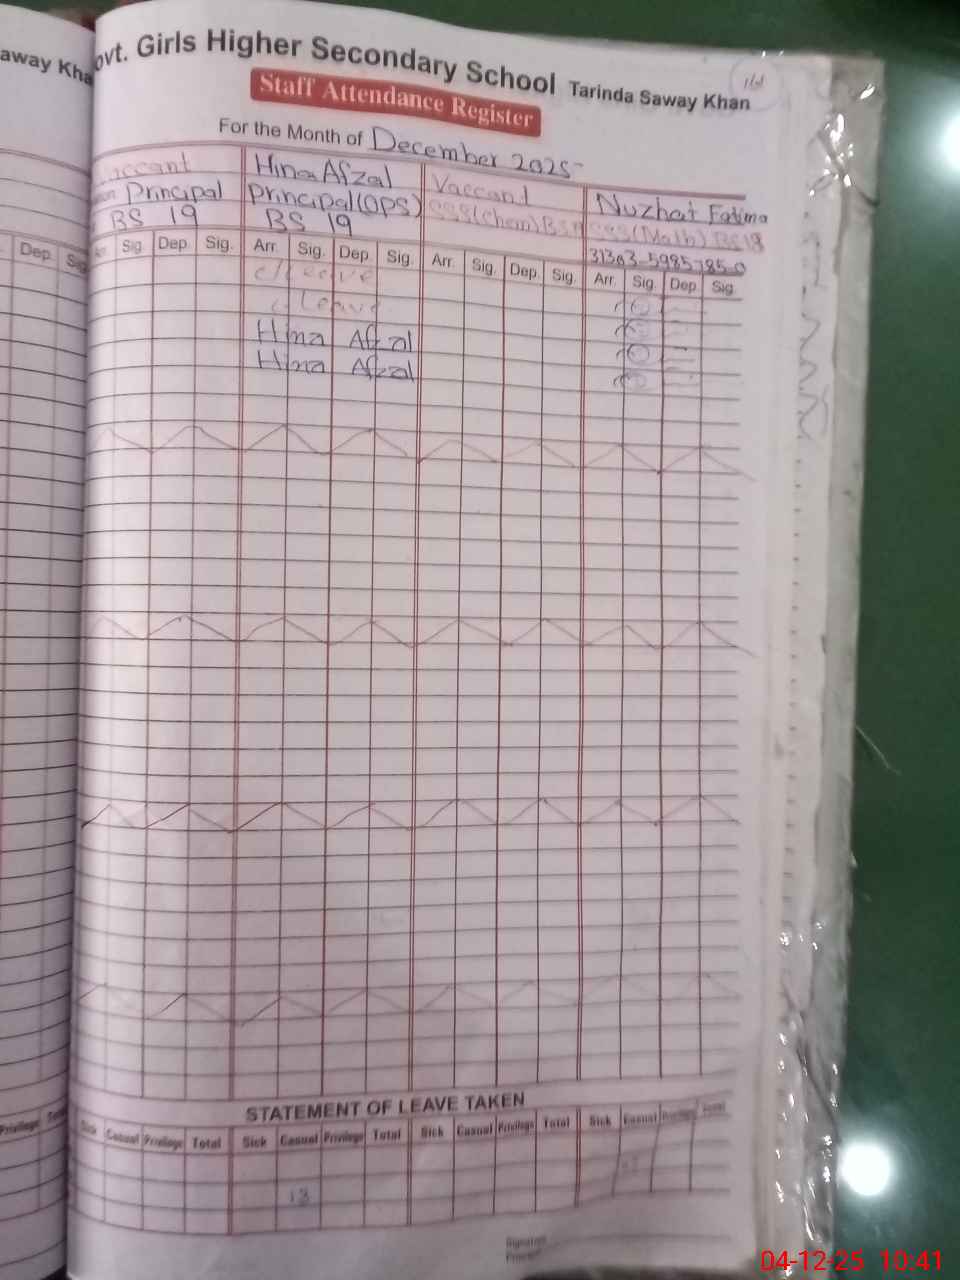 away Kha
ovt. Girls Higher Secondary School Tarinda Saway Khan
Staff Attendance Register
For the Month of December 2025
Hina Afzal Vaccant Nuzhat Fatima
Principal Principal (OPS) SSS(Chem) SSS(Math) BS18
BS 19 BS 19
31303-5985785-0
Dep. Sig
Sig. Dep. Sig. Arr. Sig. Dep. Sig. Arr. Sig. Dep. Sig. Arr. Sig. Dep. Sig.
Leave
Leave
Hina Afzal
Hina Afzal
STATEMENT OF LEAVE TAKEN
Privilege
Sick Casual Privilege Total Sick Casual Privilege Total Sick Casual Privilege Total Sick Casual Privilege Total
13
04-12-25 10:41